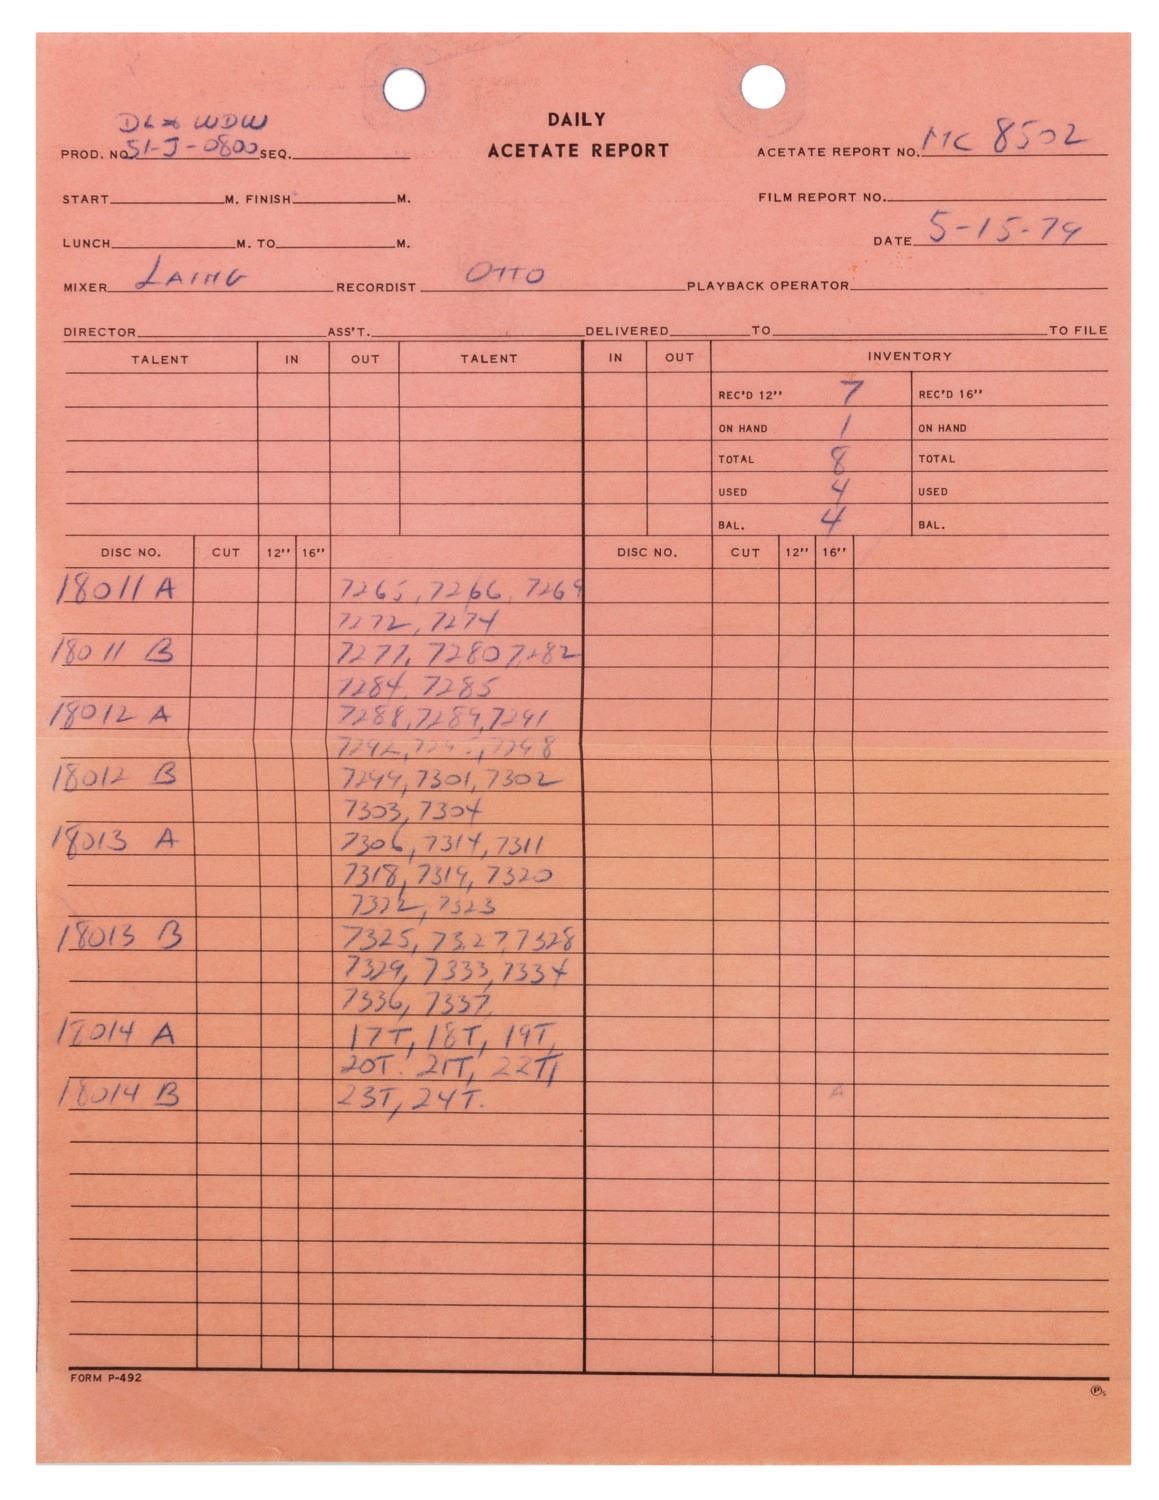 DAILY
ACETATE REPORT
DL & WDW
PROD. NO. 51-J-0800 SEQ.
ACETATE REPORT NO. MC 8502
START M. FINISH M.
FILM REPORT NO.
LUNCH M. TO M.
DATE 5-15-79
MIXER LAING RECORDIST OTTO PLAYBACK OPERATOR
DIRECTOR ASS'T. DELIVERED TO TO FILE
TALENT IN OUT TALENT IN OUT INVENTORY
REC'D 12" 7 REC'D 16"
ON HAND 1 ON HAND
TOTAL 8 TOTAL
USED 4 USED
BAL. 4 BAL.
DISC NO. CUT 12" 16" DISC NO. CUT 12" 16"
18011 A 7265, 7266, 7269
7272, 7274
18011 B 7277, 7280 7282
7284, 7285
18012 A 7288, 7289, 7291
7292, 7298
18012 B 7299, 7301, 7302
7303, 7304
18013 A 7306, 7314, 7311
7318, 7319, 7320
7322, 7323
18013 B 7325, 7327, 7328
7329, 7333, 7334
7336, 7337,
18014 A 17T, 18T, 19T,
20T. 21T, 22T,
18014 B 23T, 24T. A
FORM P-492